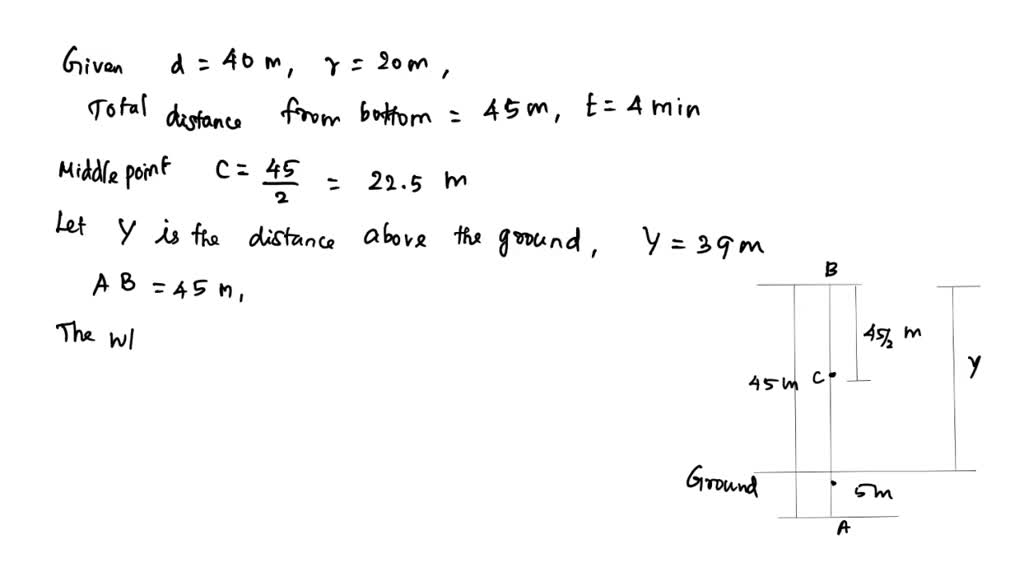 Given d = 40 m, r = 20 m,
Total distance from bottom = 45 m, t = 4 min
Middle point C = 45/2 = 22.5 m
Let Y is the distance above the ground, Y = 39 m
AB = 45 m,
The w/
B
45/2 m
45 m
C
Y
Ground
5m
A